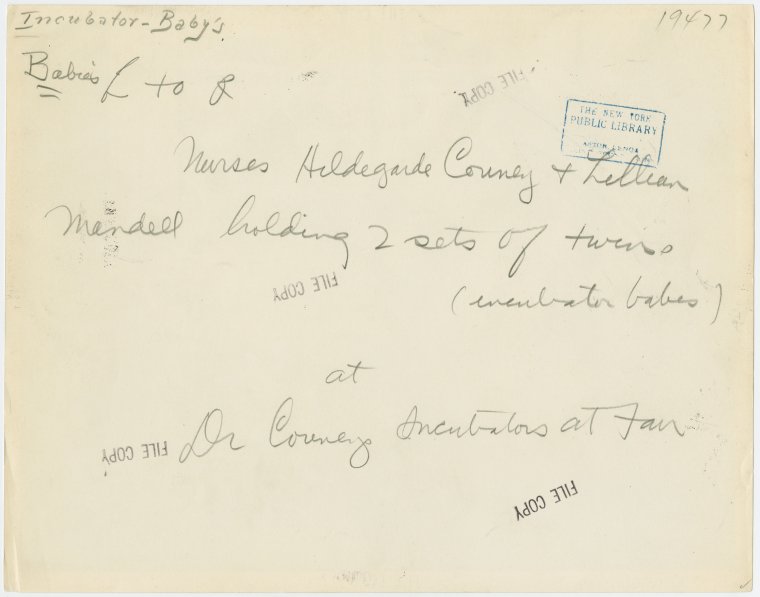 Incubator-Baby's
19477
Babies L to R
FILE COPY
THE NEW YORK
PUBLIC LIBRARY
ASTOR, LENOX
Nurses Hildegarde Couney + Lillian
Mandell holding 2 sets of twins
FILE COPY
(incubator babes)
at
Dr Couneys Incubators at Fair
FILE COPY
FILE COPY